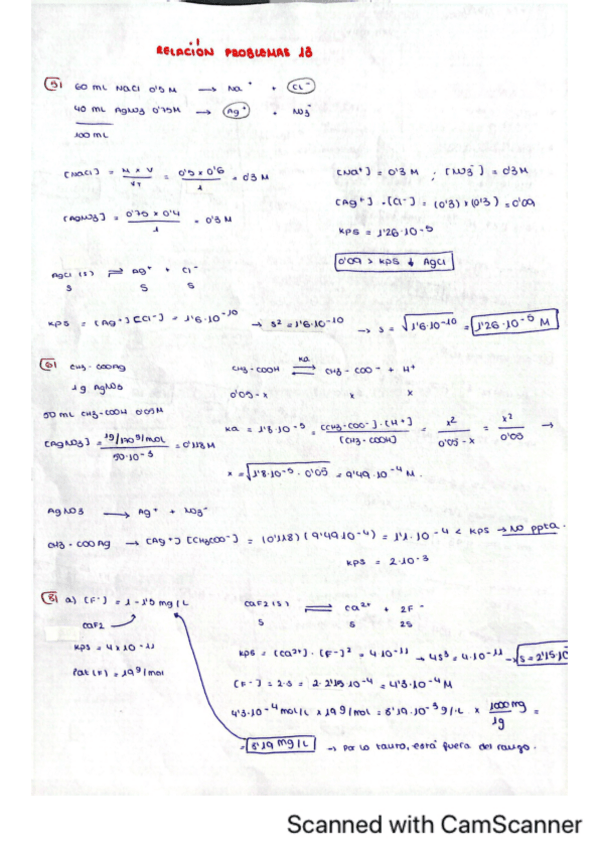 RELACIÓN PROBLEMAS 13
5) 60 mL NaCl 0'5 M → Na⁺ + Cl⁻
40 mL AgNO3 0'75M → Ag⁺ + NO3⁻
100 mL
[NaCl] = M x V / VT = 0'5 x 0'6 / 1 = 0'3 M
[Na⁺] = 0'3 M ; [NO3⁻] = 0'3M
[AgNO3] = 0'75 x 0'4 / 1 = 0'3 M
[Ag⁺] · [Cl⁻] = (0'3) x (0'3) = 0'09
KPS = 1'26·10⁻⁵
0'09 > KPS ↓ AgCl
AgCl (s) ⇌ Ag⁺ + Cl⁻
S S S
KPS = [Ag⁺][Cl⁻] = 1'6·10⁻¹⁰ → s² = 1'6·10⁻¹⁰ → s = √1'6·10⁻¹⁰ = 1'26·10⁻⁵ M
6) CH3-COOAg
1g AgNO3
50 mL CH3-COOH 0'05M
[AgNO3] = 1g/170 g/mol / 50·10⁻³ = 0'118M
CH3-COOH ⇌ Ka CH3-COO⁻ + H⁺
0'05-x x x
Ka = 1'8·10⁻⁵ = [CH3-COO⁻]·[H⁺] / [CH3-COOH] = x² / 0'05-x = x² / 0'05 →
x = √1'8·10⁻⁵ · 0'05 = 9'49·10⁻⁴ M.
AgNO3 → Ag⁺ + NO3⁻
CH3-COOAg → [Ag⁺][CH3COO⁻] = (0'118)(9'49·10⁻⁴) = 1'1·10⁻⁴ < KPS → No ppta.
KPS = 2·10⁻³
8) a) [F⁻] = 1-1'5 mg/L
CaF2
KPS = 4x10⁻¹¹
Pat(F) = 19 g/mol
CaF2(s) ⇌ Ca²⁺ + 2F⁻
S S 2S
KPS = [Ca²⁺]·[F⁻]² = 4·10⁻¹¹ → 4s³ = 4·10⁻¹¹ → s = 2'15·10
[F⁻] = 2·s = 2·2'15·10⁻⁴ = 4'3·10⁻⁴ M
4'3·10⁻⁴ mol/L x 19 g/mol = 8'19·10⁻³ g/L x 1000mg / 1g =
= 8'19 mg/L → Por lo tanto, está fuera del rango.
Scanned with CamScanner